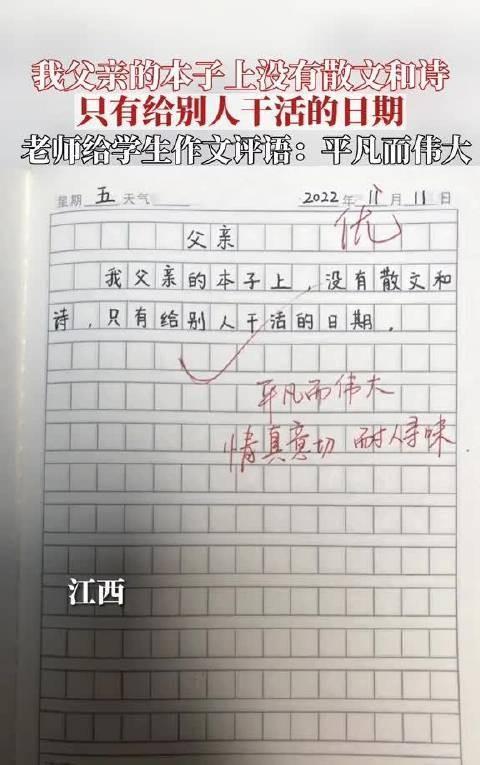 我父亲的本子上没有散文和诗
只有给别人干活的日期
老师给学生作文评语：平凡而伟大
星期 五 天气 2022年 11月 11日
父亲 优
我父亲的本子上，没有散文和
诗，只有给别人干活的日期．
平凡而伟大
情真意切 耐人寻味
江西